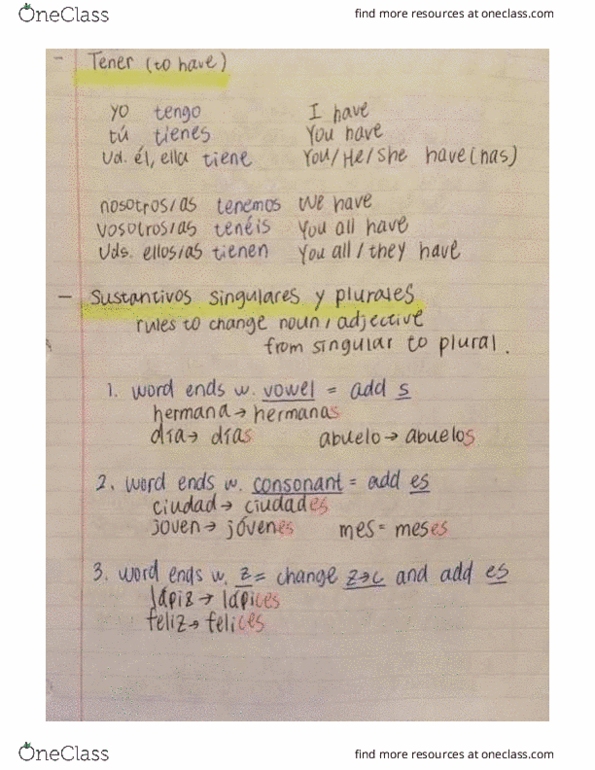 OneClass find more resources at oneclass.com
- Tener (to have)
yo tengo I have
tú tienes You have
Ud. él, ella tiene You/He/She have (has)
nosotros/as tenemos We have
vosotros/as tenéis You all have
Uds. ellos/as tienen You all / they have
- Sustantivos singulares y plurales
rules to change noun / adjective
from singular to plural.
1. word ends w. vowel = add s
hermana → hermanas
día → días abuelo → abuelos
2. word ends w. consonant = add es
ciudad → ciudades
joven → jóvenes mes = meses
3. word ends w. z = change z→c and add es
lápiz → lápices
feliz → felices
OneClass find more resources at oneclass.com